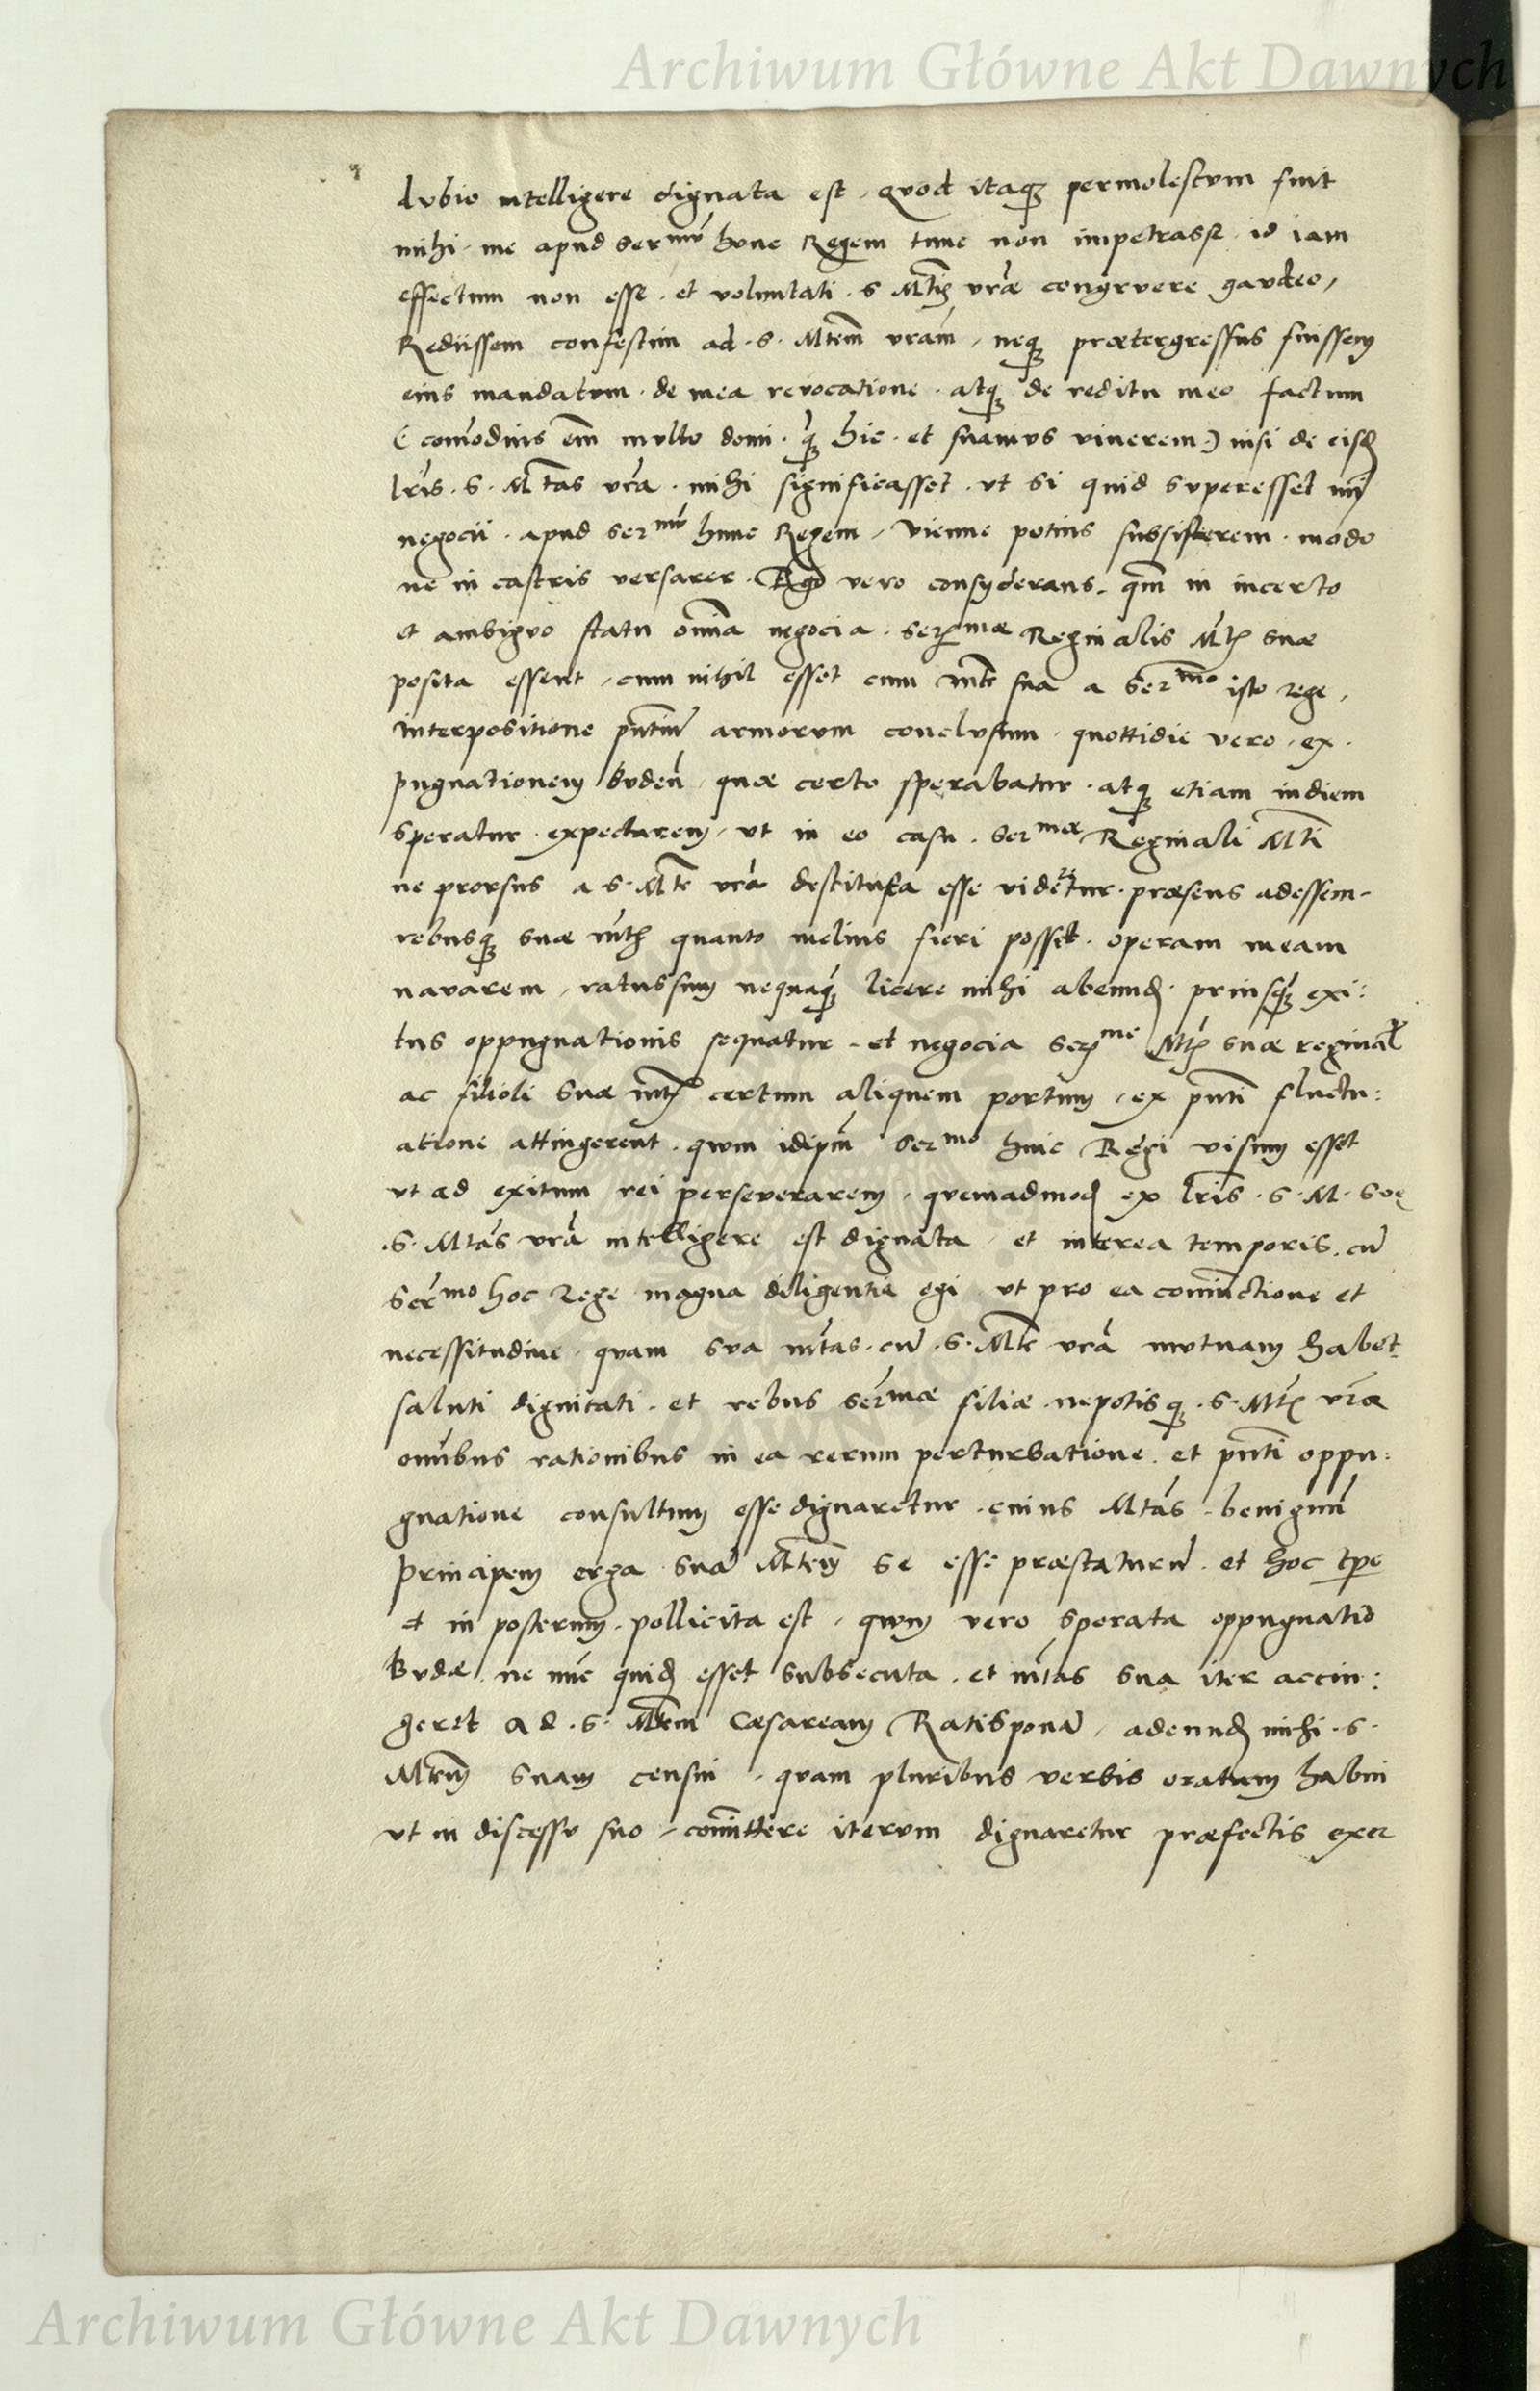 Archiwum Główne Akt Dawnych
dvbio intelligere dignata est, qvod itaq3 permolestvm fuit
mihi, me apud sermū hvnc Regem tunc non impetrasse, id iam
effectum non esse, et voluntati .s. Mtis vrāe congrvere gavdeo,
Rediissem confestim ad .s. Mtem vram, neq3 prætergressus fuissem
eius mandatvm, de mea revocatione, atq3 de reditu meo factum
(com̄odius em̄ mvlto domi, q̃3 hic, et suavius viverem) nisi de eisd
lrīs .s. Mtas vrā, mihi significasset, vt si quid svperesset mj
negocii, apud sermū hunc Regem, vienne potius subsisterem, modo
ne in castris versarer. Ego vero consyderans, qm̄ in incerto
et ambigvo statu om̄ia negocia, serᵐæ Reginalis Mtis svæ
posita essent, cum nihil esset cum mte sua a serᵐo isto rege,
interpositione pn̄tiū armorvm conclvsum, quottidie vero, ex.
pugnationem bvdeñ, quæ certo sperabatur, atq3 etiam indiem
speratur, expectarem, vt in eo casu, serᵐæ Reginali Mti
ne prorsus a .s. Mte vrā destituta esse videretur, præsens adessem,
rebusq3 svæ mtis quanto melius fieri posset, operam meam
navarem, ratus sum nequaq̃3 licere mihi abeund, priusq̃3 exi:
tus oppugnationis sequatur, et negocia serᵐe Mtis svæ reginal
ac filioli svæ mtis certum aliquem portum, ex pn̄ti fluctu:
atione attingerent, qvvm idipm̄ serᵐo huic Regi visum esset
vt ad exitum rei perseverarem, qvemadmod ex lrīs .s. M. svæ
.s. Mtas vrā intelligere est dignata, et interea temporis, cū
serᵐo hoc Rege magna diligentia egi, vt pro ea coniūctione et
necessitudine, qvam sva mtas, cū .s. Mte vrā mvtuam habet,
saluti dignitati, et rebus serᵐæ filiæ, nepotisq3 .s. Mtis vræ
om̄ibus rationibus in ea rerum perturbatione, et pn̄ti oppu:
gnatione consultum esse dignaretur, cuius Mtas, benignū
principem erga suā Mtem se esse præstaturū, et hoc tpe
et in posterum, pollicita est, qvvm vero sperata oppugnatio
Bvdæ, ne nūc quid esset subsecuta, et mtas sua iter accin:
geret ad .s. Mtem Cæsaream Ratisponā, adeund mihi .s.
Mtem suam censui, qvam pluribus verbis oratam habui
vt in discessv suo, com̄ittere itervm dignaretur præfectis exer
Archiwum Główne Akt Dawnych